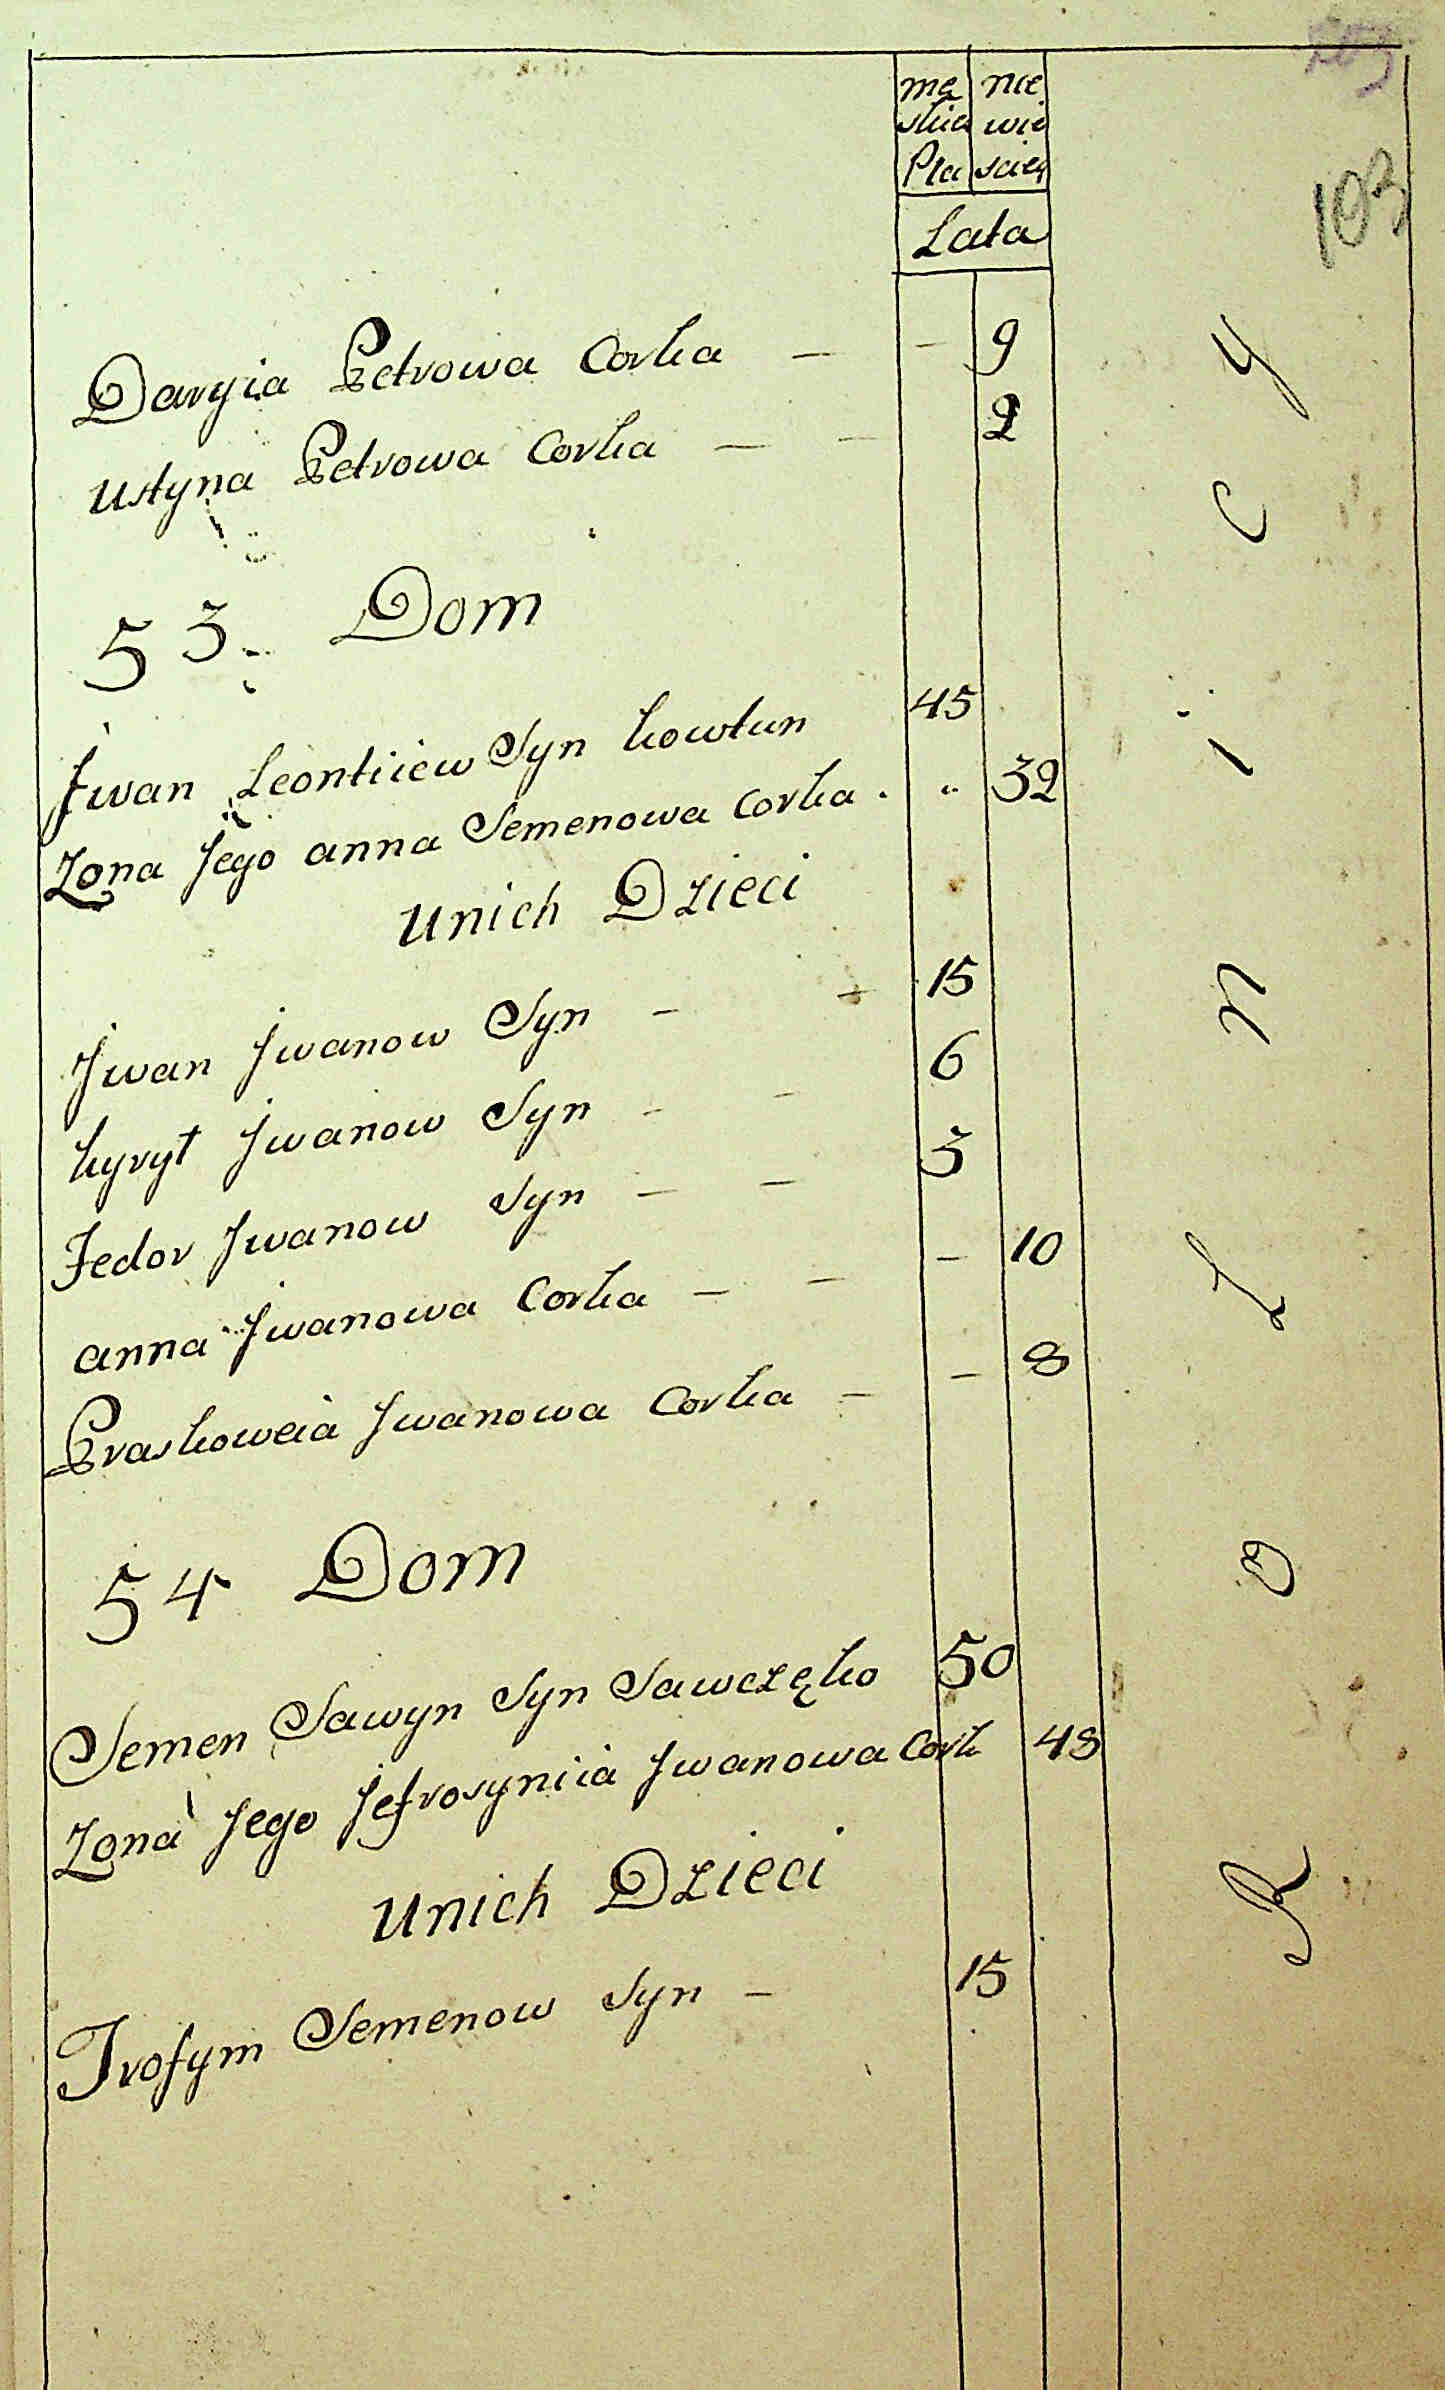 mę nie
skia wie
Płci sciey
Lata
103
Daryia Petrowa Corka — — 9
Ustyna Petrowa Corka — — 2
53. Dom
Jwan Leontiiew Syn kowtun 45
Zona Jego anna Semenowa Corka . " 32
Unich Dzieci
Jwan Jwanow Syn — — 15
kyrył Jwanow Syn - - 6
Fedor Jwanow Syn — — 3
anna Jwanowa Corka — — — 10
Praskoweia Jwanowa Corka — — 8
54 Dom
Semen Sawyn Syn Sawczęko 50
Zona Jego Jefrosyniia Jwanowa Cork 48
Unich Dzieci
Trofym Semenow Syn — 15
Rolnicy